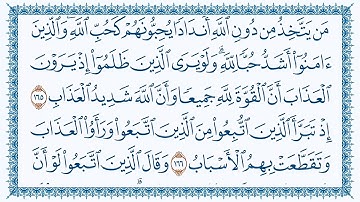 مَن يَتَّخِذُ مِن دُونِ ٱللَّهِ أَندَادًا يُحِبُّونَهُمْ كَحُبِّ ٱللَّهِ وَٱلَّذِينَ
ءَامَنُوٓا۟ أَشَدُّ حُبًّا لِّلَّهِ وَلَوْ يَرَى ٱلَّذِينَ ظَلَمُوٓا۟ إِذْ يَرَوْنَ
ٱلْعَذَابَ أَنَّ ٱلْقُوَّةَ لِلَّهِ جَمِيعًا وَأَنَّ ٱللَّهَ شَدِيدُ ٱلْعَذَابِ ١٦٥
إِذْ تَبَرَّأَ ٱلَّذِينَ ٱتُّبِعُوا۟ مِنَ ٱلَّذِينَ ٱتَّبَعُوا۟ وَرَأَوُا۟ ٱلْعَذَابَ
وَتَقَطَّعَتْ بِهِمُ ٱلْأَسْبَابُ ١٦٦ وَقَالَ ٱلَّذِينَ ٱتَّبَعُوا۟ لَوْ أَنَّ